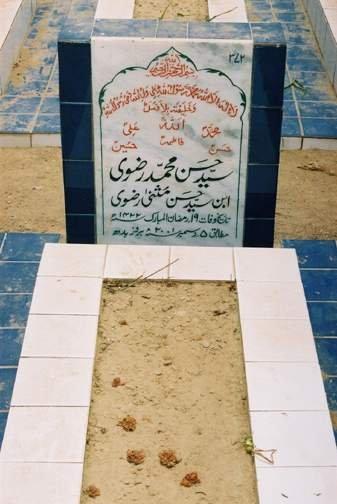 ۳۷۲
بسم اللہ الرحمن الرحیم
لا الہ الا اللہ محمد رسول اللہ علی ولی اللہ وصی رسول اللہ
وخلیفتہ بلا فصل
محمد اللہ علی
حسن فاطمہ حسین
سید حسن محمد رضوی
ابن سید حسن مثنیٰ رضوی
تاریخ وفات ۱۹ رمضان المبارک ۱۴۲۲ھ
مطابق ۵ دسمبر ۲۰۰۱ء بروز بدھ